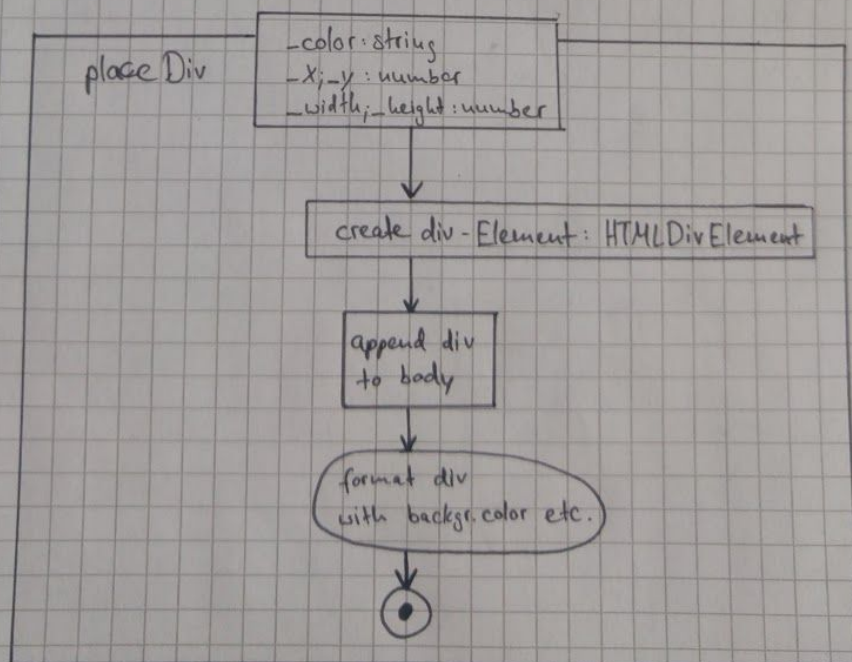 placeDiv
_color: string
_x; _y: number
_width; _height: number
create div-Element: HTMLDivElement
append div
to body
format div
with backgr.color etc.